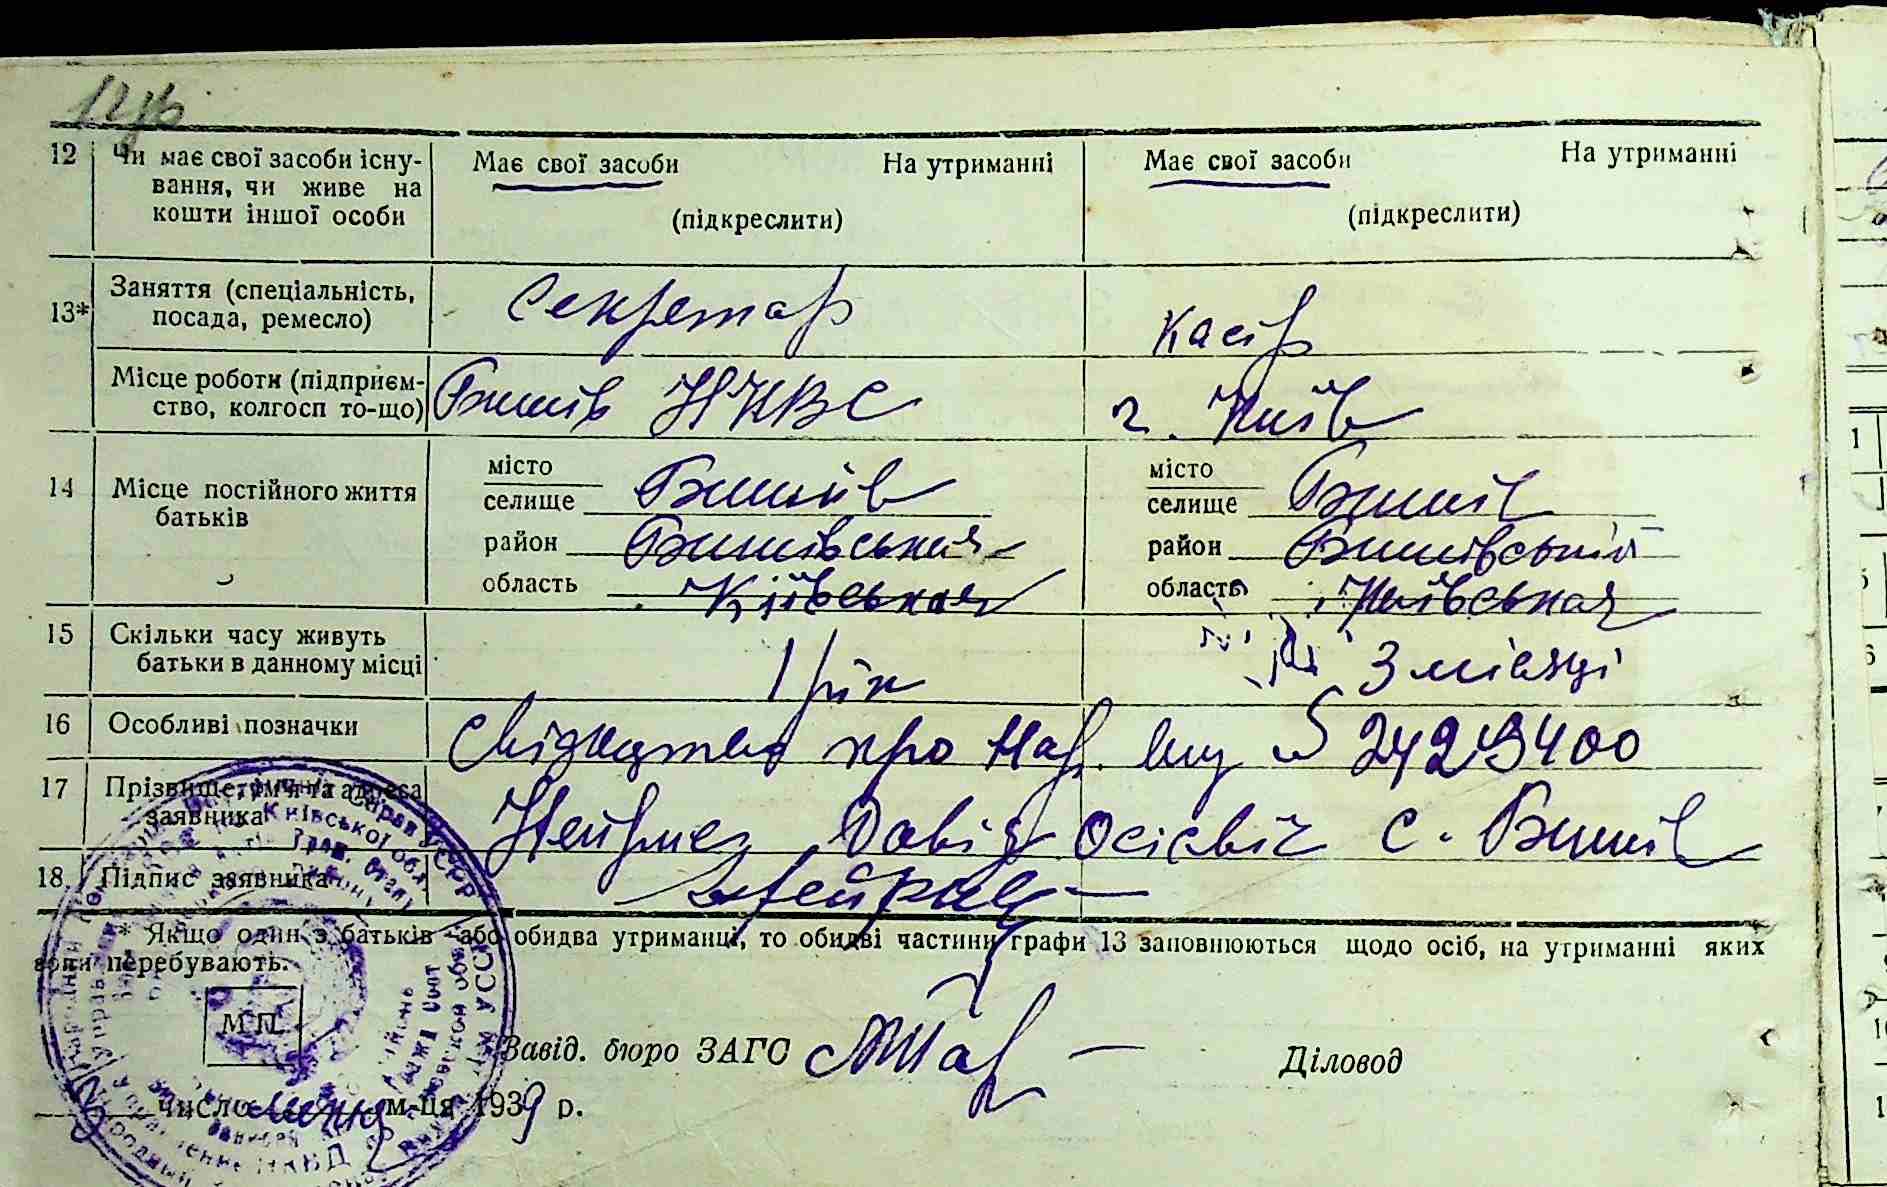 12
Чи має свої засоби існу-
вання, чи живе на
кошти іншої особи
Має свої засоби На утриманні
(підкреслити)
Має свої засоби На утриманні
(підкреслити)
13*
Заняття (спеціальність,
посада, ремесло)
Секретар
касір
Місце роботи (підприєм-
ство, колгосп то-що)
Бишів НКВС
г. Київ
14
Місце постійного життя
батьків
місто
селище Бишів
район Бишівськая
область Київськая
місто
селище Бишів
район Бишівський
область Київськая
15
Скільки часу живуть
батьки в данному місці
1 рік
3 місяці
16
Особливі позначки
свідоцтво про нар.
17
Прізвище, ім'я та адреса
заявника
Давід Осієвіч с. Бишів
18
Підпис заявника
* Якщо один з батьків або обидва утриманці, то обидві частини графи 13 заповнюються щодо осіб, на утриманні яких
вони перебувають.
М.П.
Завід. бюро ЗАГС
Діловод
число м-ця 1939 р.